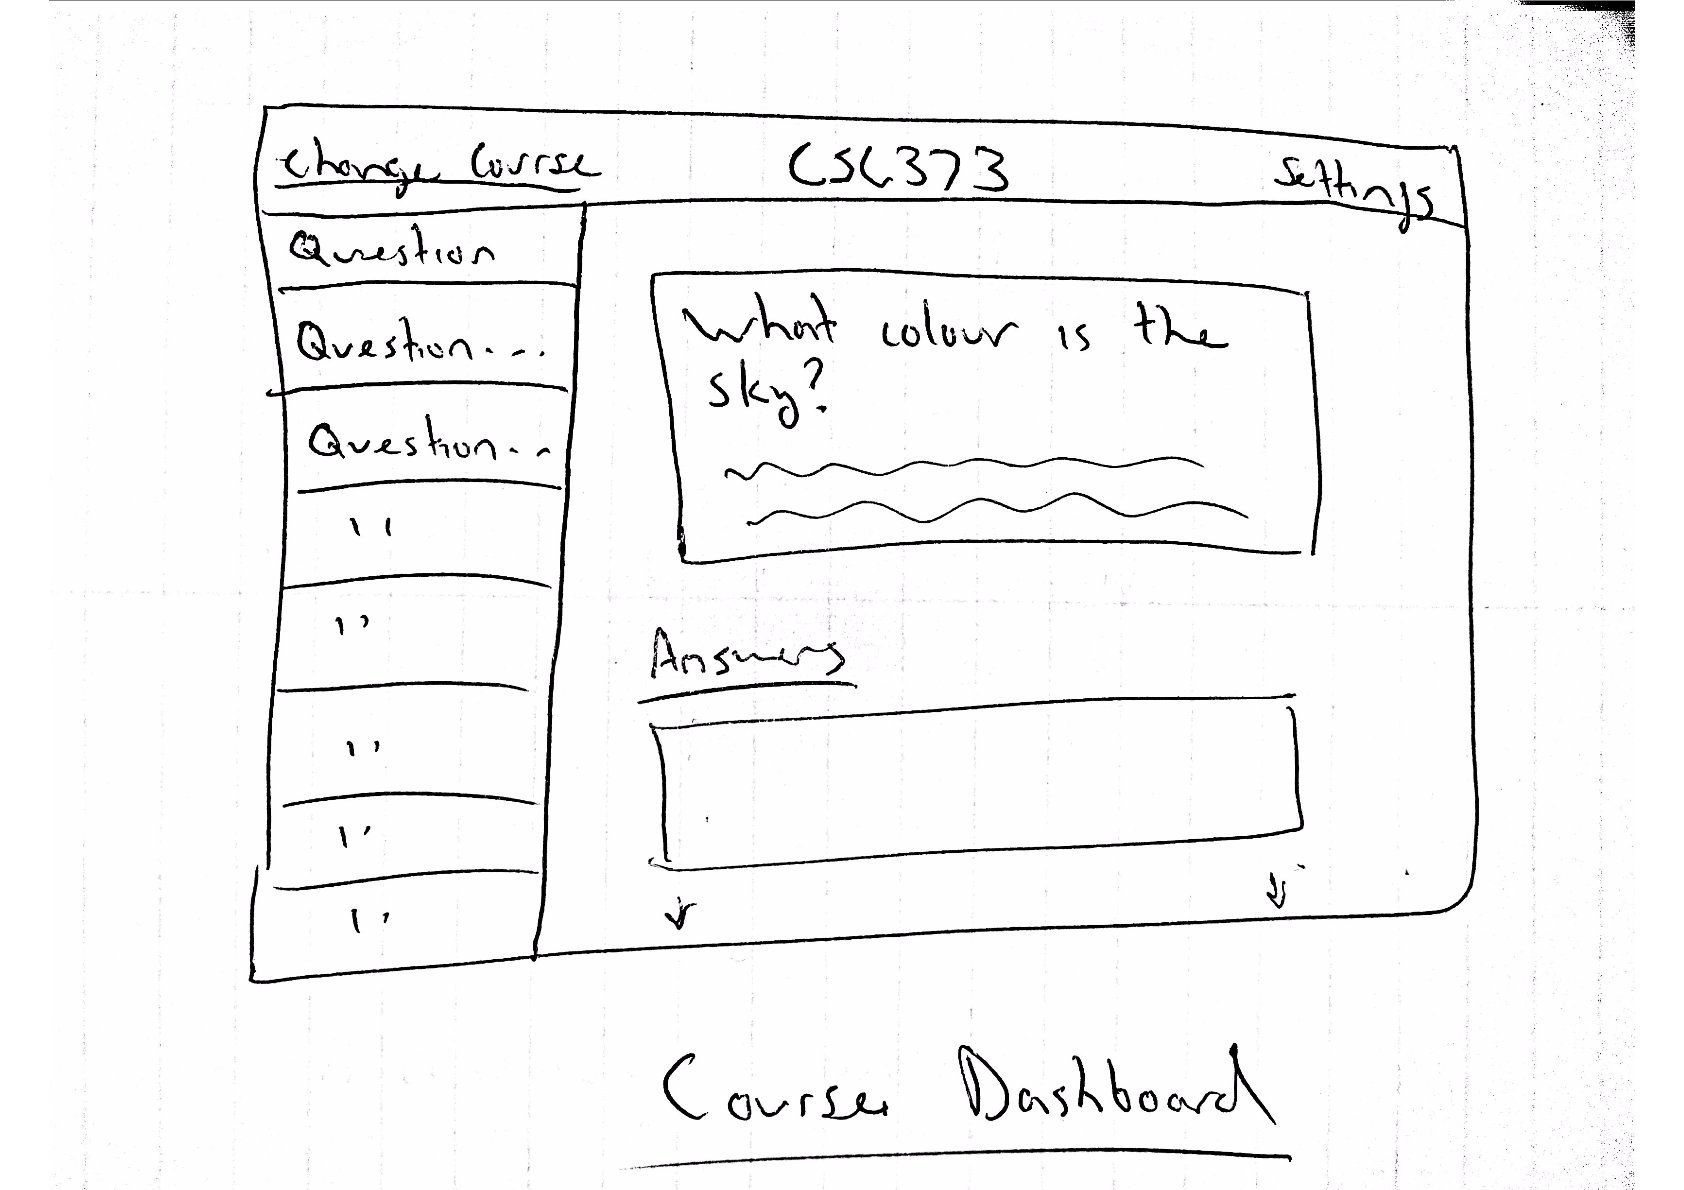 Change Course CSC373 Settings
Question
Question...
Question...
"
"
"
"
"
What colour is the
sky?
Answers
Course Dashboard